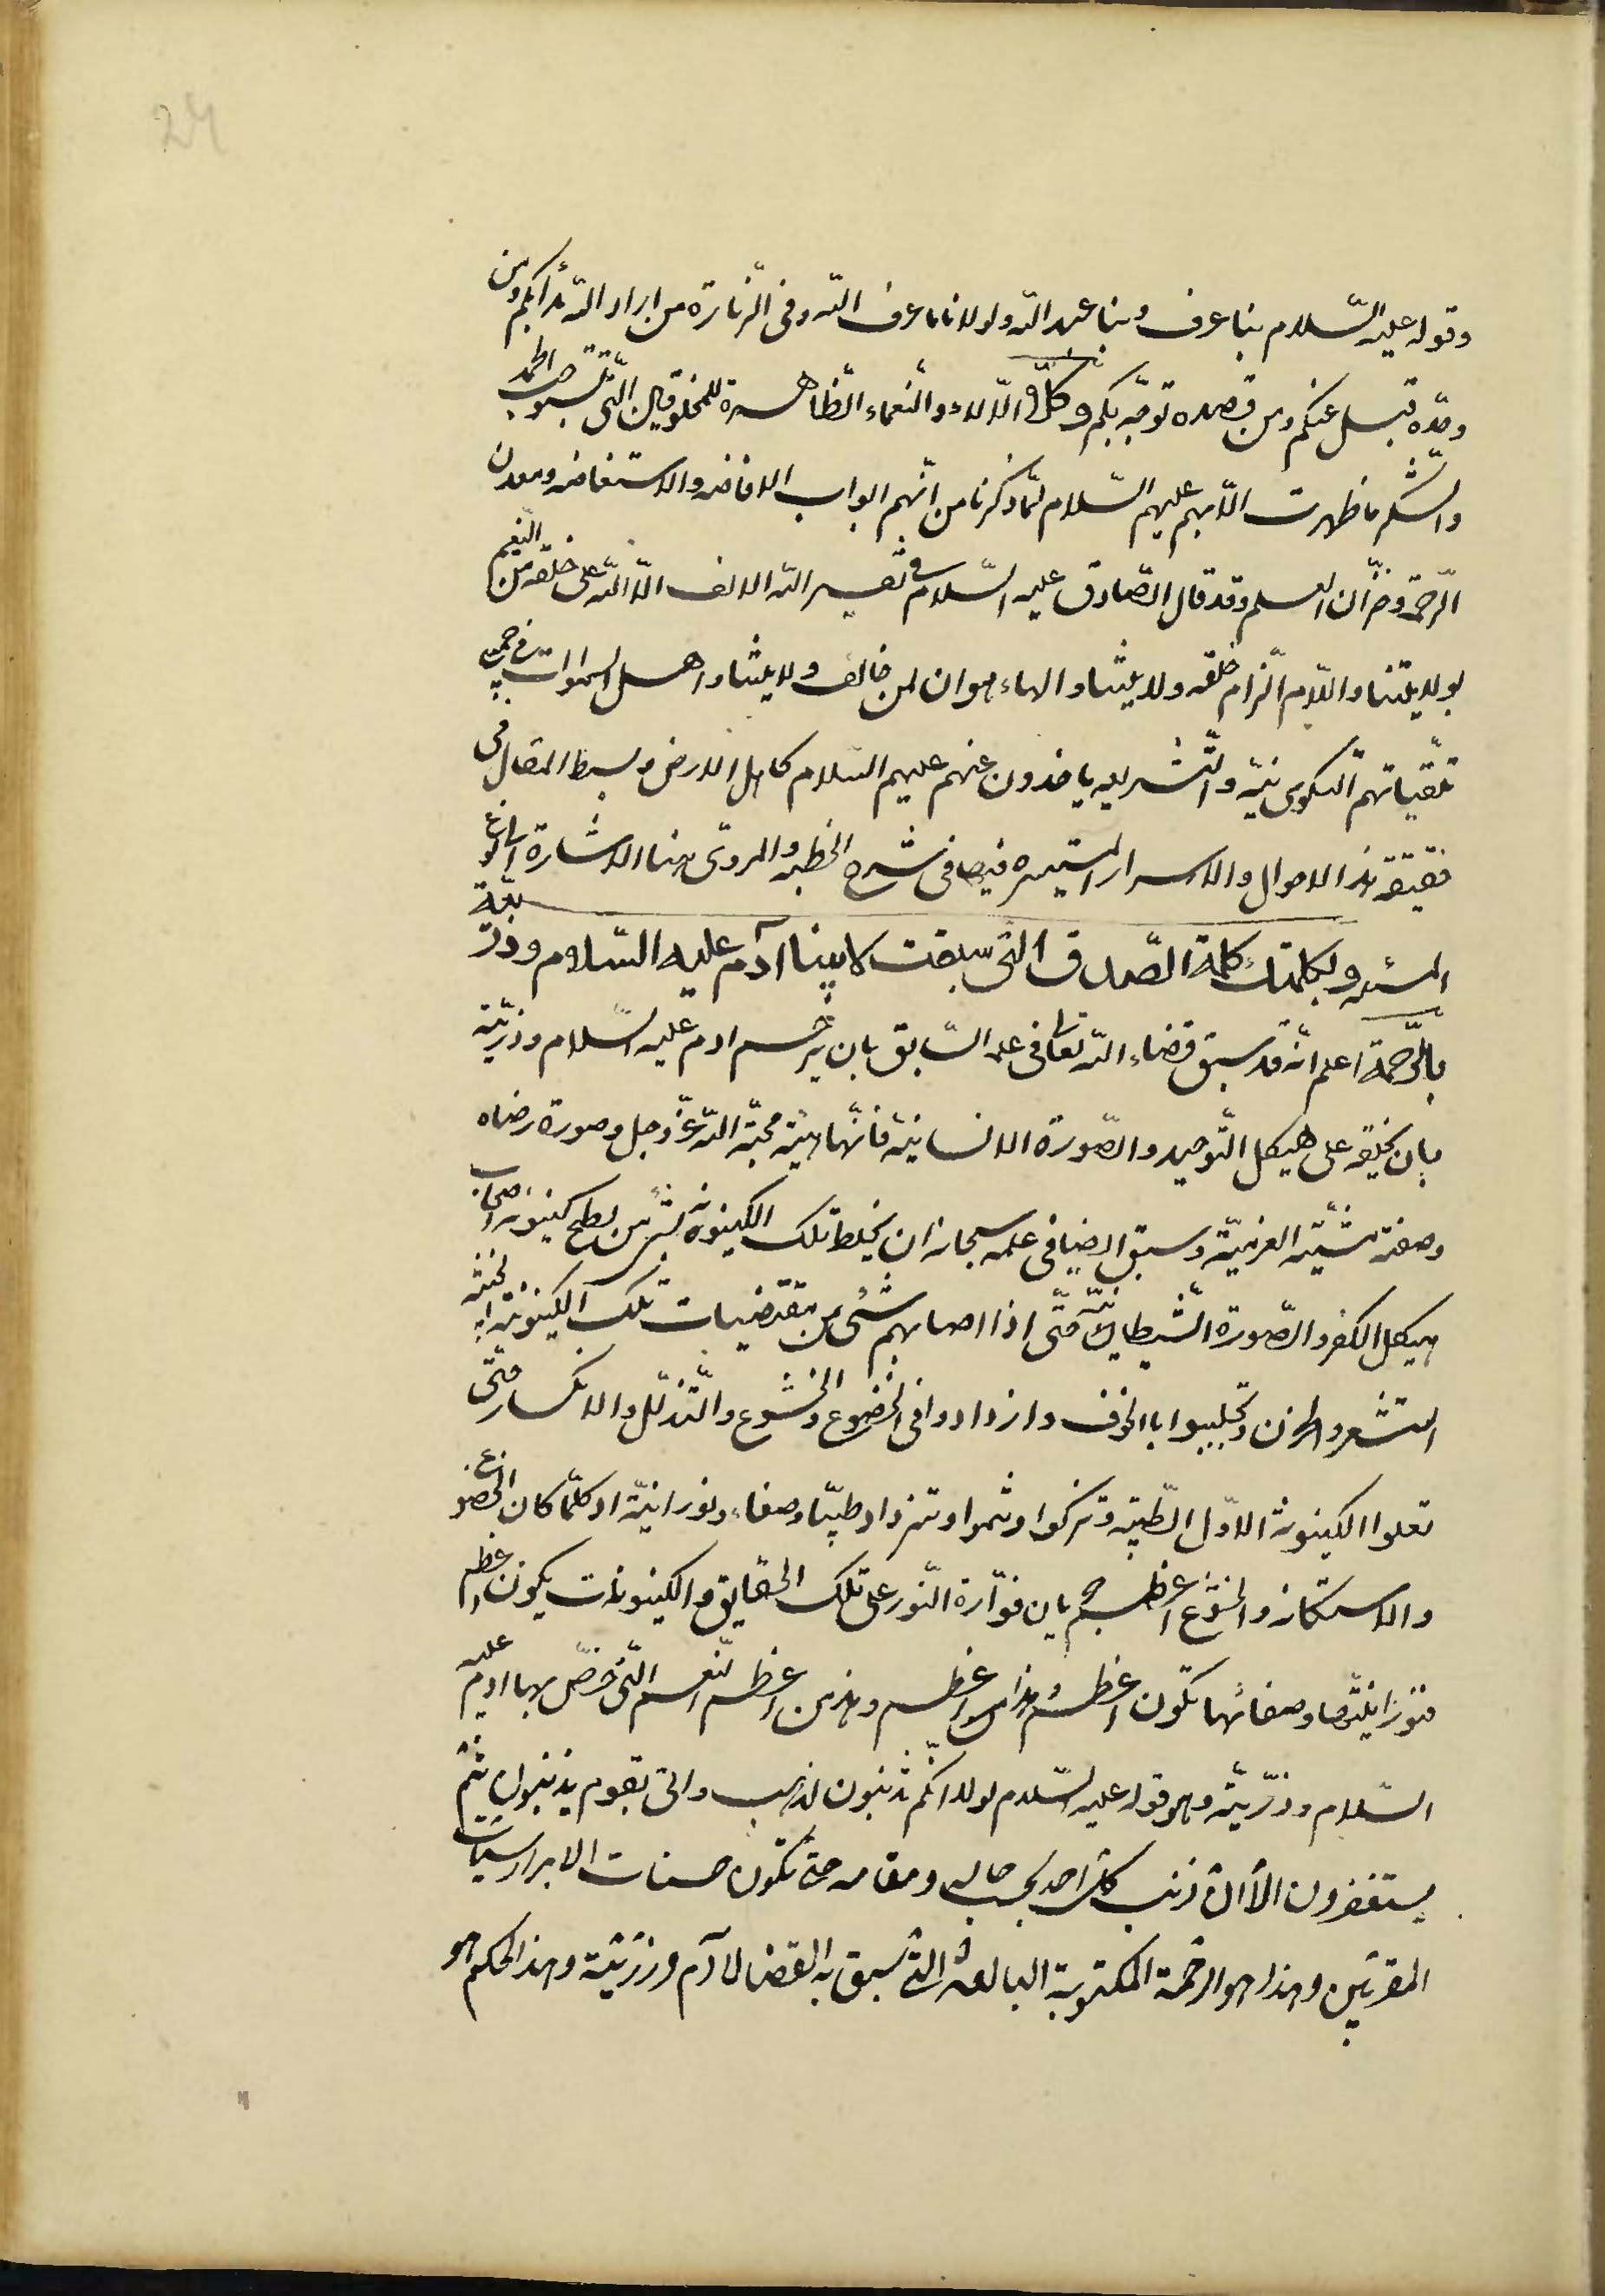 24
وقوله عليه السّلام بنا عرف وبنا عبد اللّه ولولانا ما عرف اللّه وفى الزّيارة من اراد اللّه بدأ بكم ومن
وحّده قبل عنكم ومن قصده توجّه بكم وكلّ الآلاء والنّعماء الظّاهرة للمخلوقين الّتى تستوجب الحمد
والشّكر ما ظهرت الّا بهم عليهم السّلام لما ذكرنا من انّهم ابواب الافاضه والاستفاضه ومعدن
الرّحمة وخزّان العلم وقد قال الصّادق عليه السّلام فى تفسير اللّه الالف الآء اللّه على خلقه من النّعيم
بولايتنا واللّام الزام خلقه ولايتنا والهاء هوان لمن خالف ولايتنا واهل السموات فى جميع
تلقّياتهم التكوينيّة والتّشريعيه ياخذون عنهم عليهم السّلام كاهل الارض وبسط المقال فى
حقيقة هذا الاحوال والاسرار المستسرّه فيها فى شرح الخطبه والمروىّ هنا الاشارة الى نوع
المسئله وبكلمتك كلمة الصّدق الّتى سبقت لابينا آدم عليه السّلام وذرّيّته
بالرّحمة اعلم انّه قد سبق قضاء اللّه تعالى فى علمه السّابق بان يرحم ادم عليه السّلام وذرّيّته
بان يخلقه على هيكل التّوحيد والصّورة الانسانيّة فانّها هيئة محبّة اللّه عزّ وجل وصورة رضاه
وصفة مشيّته العزميّة وسبق ايضا فى علمه سبحانه ان يخلط تلك الكينونة بشىء من لطخ كينونة اصحاب
هيكل الكفر والصّورة الشّيطانيّة حتّى اذا اصابهم شىء من مقتضيات تلك الكينونة الخبيثة
استشعروا الحزن وتجلببوا بالخوف وازدادوا فى الخضوع والخشوع والتّذلّل والانكسار حتّى
تعلوا الكينونة الاوّل الطّيّبة وتزكوا وتنموا وتزداد طيبا وصفاء ونورانيّة اذ كلّما كان الخضوع
والاستكانه والخشوع اعظم جريان فوّارة النّور على تلك الحقايق والكينونات يكون اعظم
فنورانيّتها وصفائها تكون اعظم وهذا من اعظم وهذه من اعظم النّعم الّتى خصّ بها ادم عليه
السّلام وذرّيّته وهو قوله عليه السّلام لولا انّكم تذنبون لذهب واتى بقوم يذنبون ثمّ
يستغفرون الّا انّ ذنب كلّ احد بحسب حاله ومقامه حتى تكون حسنات الابرار سيّئات
المقرّبين وهذا هو الرّحمة المكتوبة البالغة الّتى سبق به القضا لآدم وذرّيّته وهذا الحكم هو